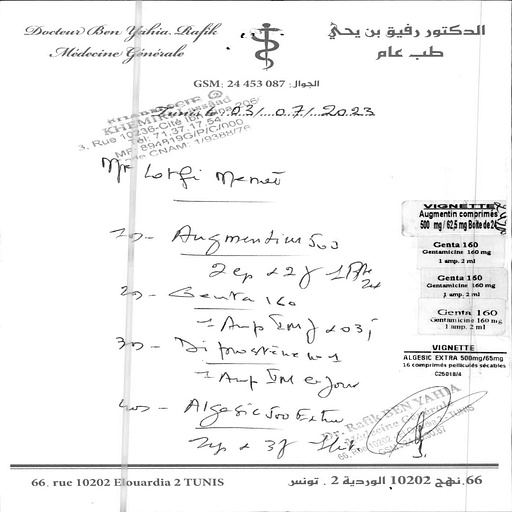 Docteur Ben Yahia. Rafik
Médecine Générale
الدكتور رفيق بن يحيى
طب عام
GSM: 24 453 087 :الجوال
Tunis le 03/07/2023
KHEMIRI
3, Rue 10236-Cité Ibn
Tél: 71.37.17.54
MF: 894819G/P/C/000
CNAM: 1/9388/76
Mr Lotfi
1°- Augmentin 500
2 cp x 2 j
2°- Genta 160
1 Amp IM j x 03 j
3°- Diprostène n° 1
1 Amp IM
4°- Algesic 500 Extra
2 cp x 3 j
VIGNETTE
Augmentin comprimés
500 mg / 62,5 mg Boite de 24
Genta 160
Gentamicine 160 mg
1 amp. 2 ml
Genta 160
Gentamicine 160 mg
1 amp. 2 ml
Genta 160
Gentamicine 160 mg
1 amp. 2 ml
VIGNETTE
ALGESIC EXTRA 500mg/65mg
16 comprimés pelliculés sécables
Dr. Rafik BEN YAHIA
Médecine Générale
66, Rue 10202
TUNIS
66, rue 10202 Elouardia 2 TUNIS
66، نهج 10202 الوردية 2 . تونس